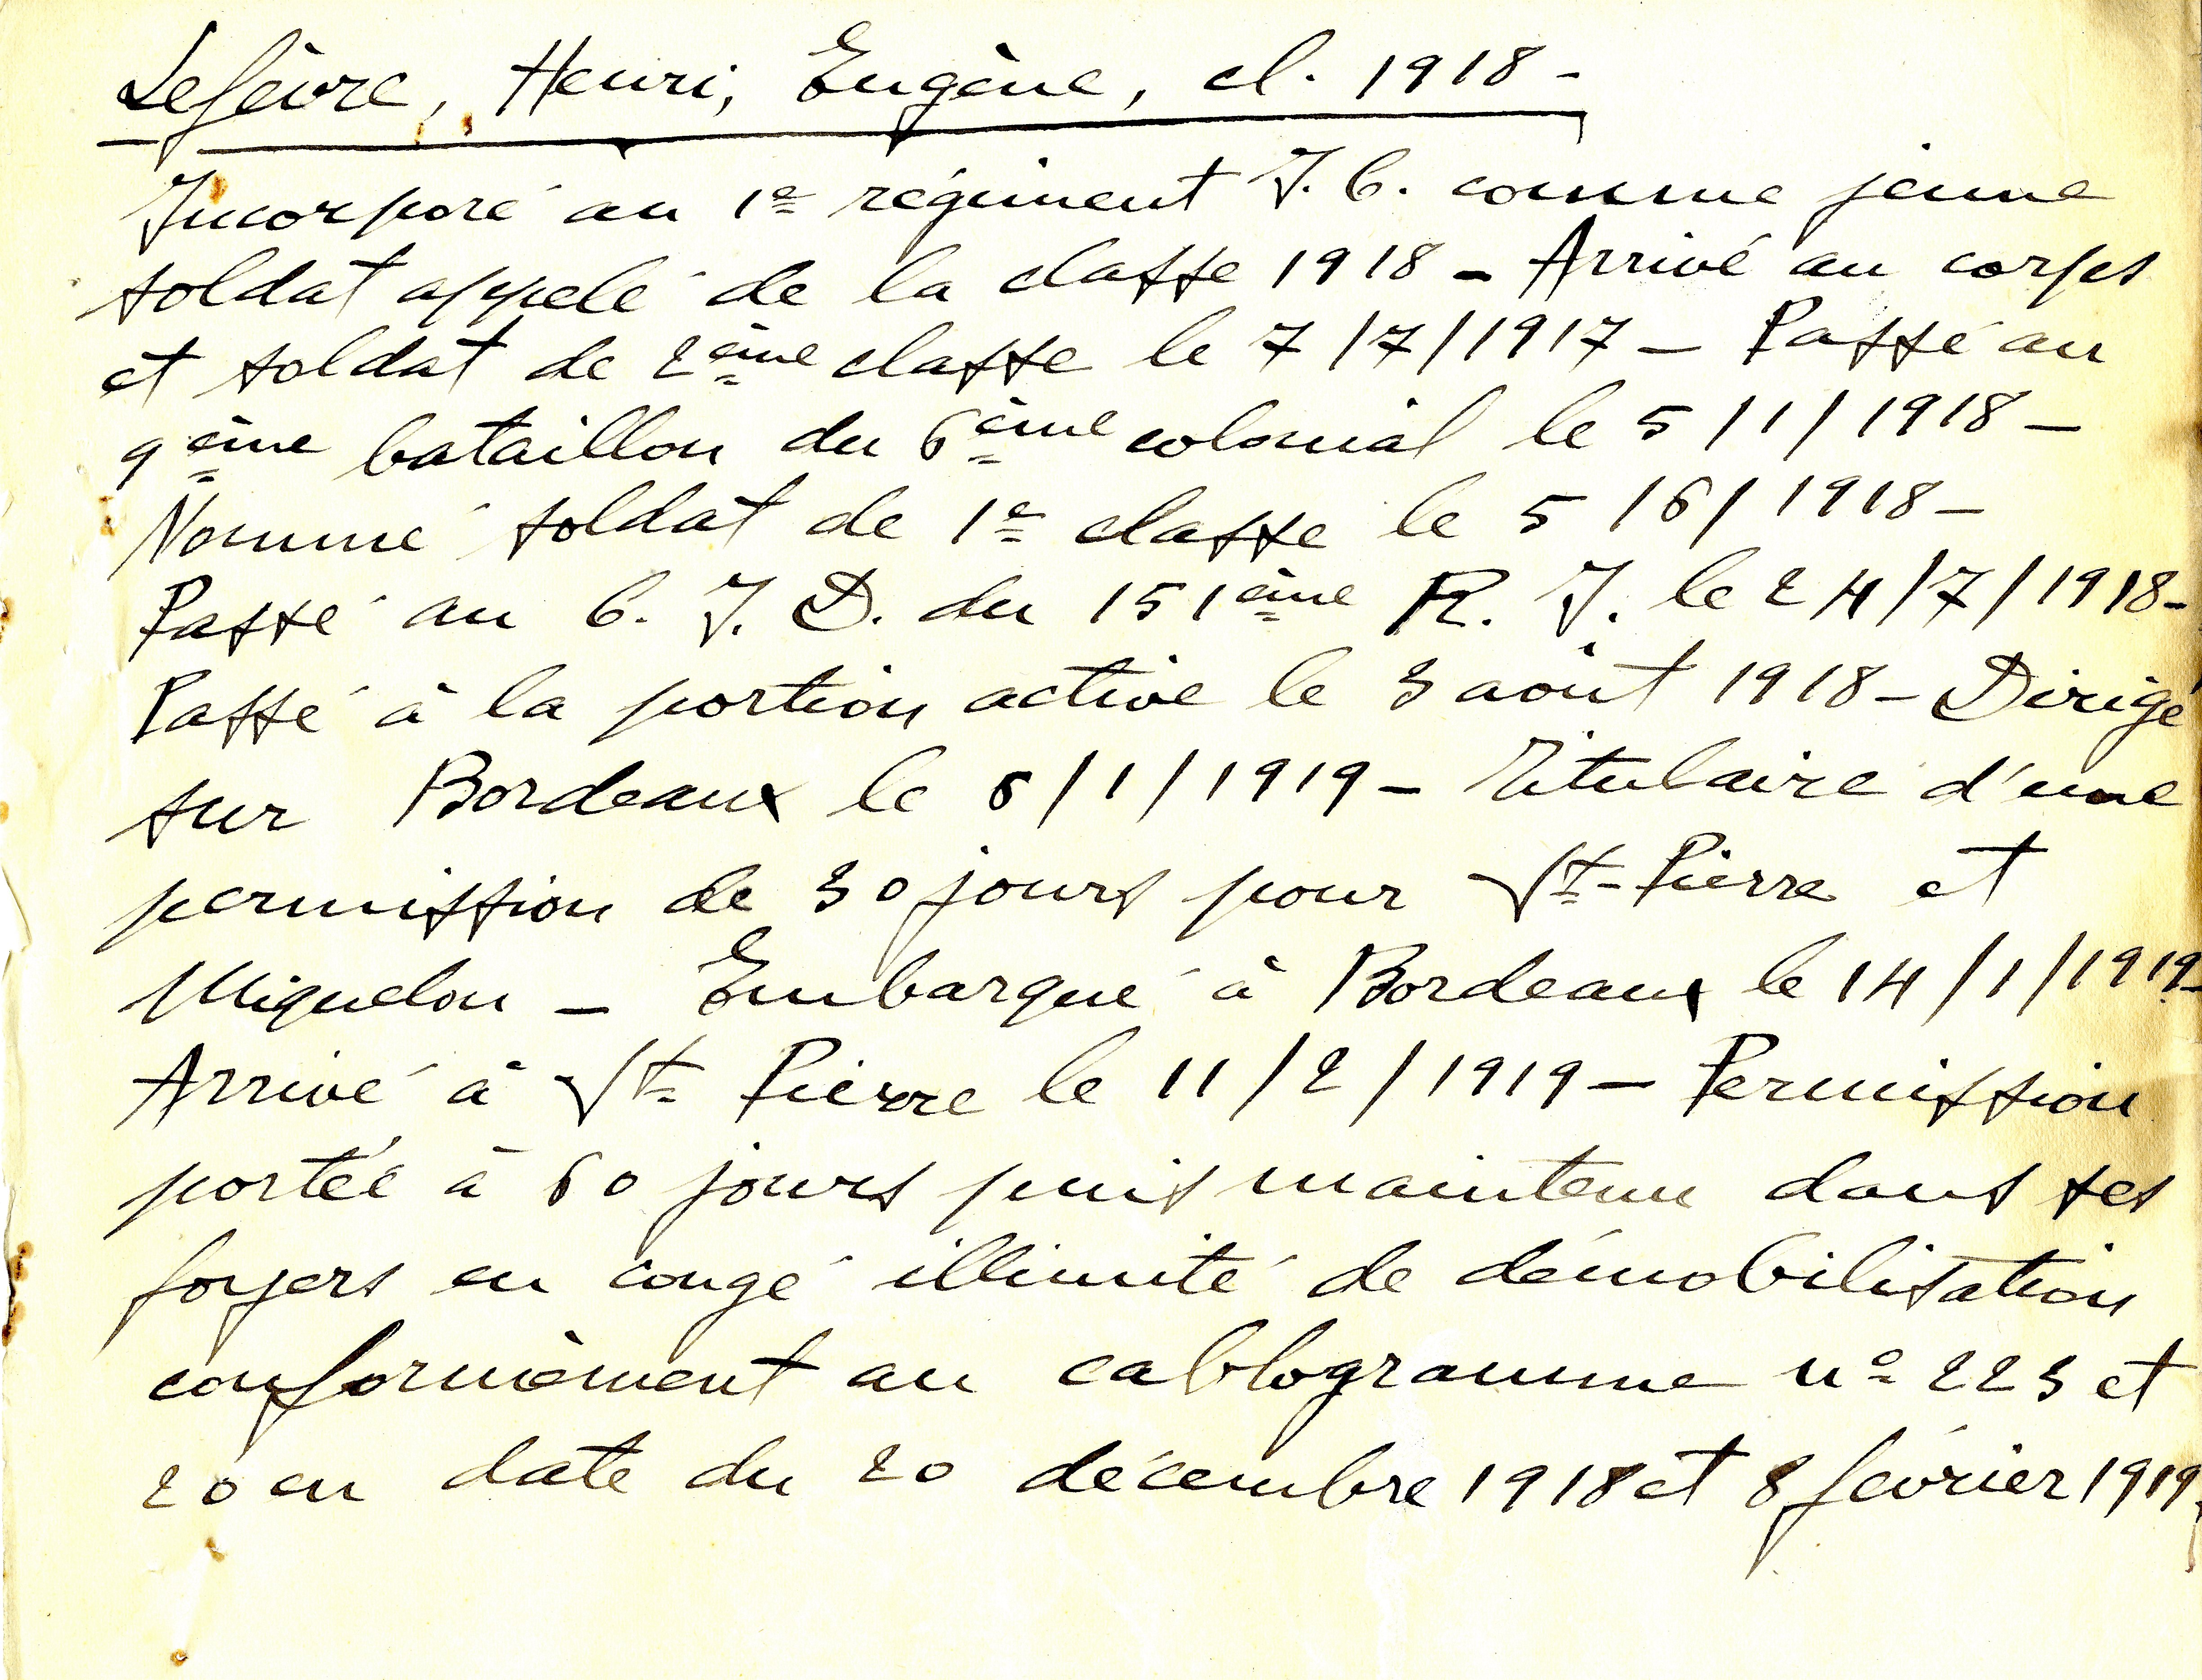 Lefèvre, Henri, Eugène, cl. 1918 -
Incorporé au 1e régiment I. C. comme jeune
soldat appelé de la classe 1918 - Arrivé au corps
et soldat de 2ème classe le 7/7/1917 - Passé au
9ème bataillon du 6ème colonial le 5/1/1918 -
Nommé soldat de 1e classe le 5/6/1918 -
Passé au C. I. D. du 151ème R. I. le 24/7/1918 -
Passé à la portion active le 3 août 1918 - Dirigé
sur Bordeaux le 6/1/1919 - Titulaire d'une
permission de 30 jours pour St-Pierre et
Miquelon - Embarqué à Bordeaux le 14/1/1919 -
Arrivé à St Pierre le 11/2/1919 - Permission
portée à 60 jours puis maintenu dans ses
foyers en congé illimité de démobilisation
conformément au cablogramme no 223 et
20 en date du 20 décembre 1918 et 8 février 1919.